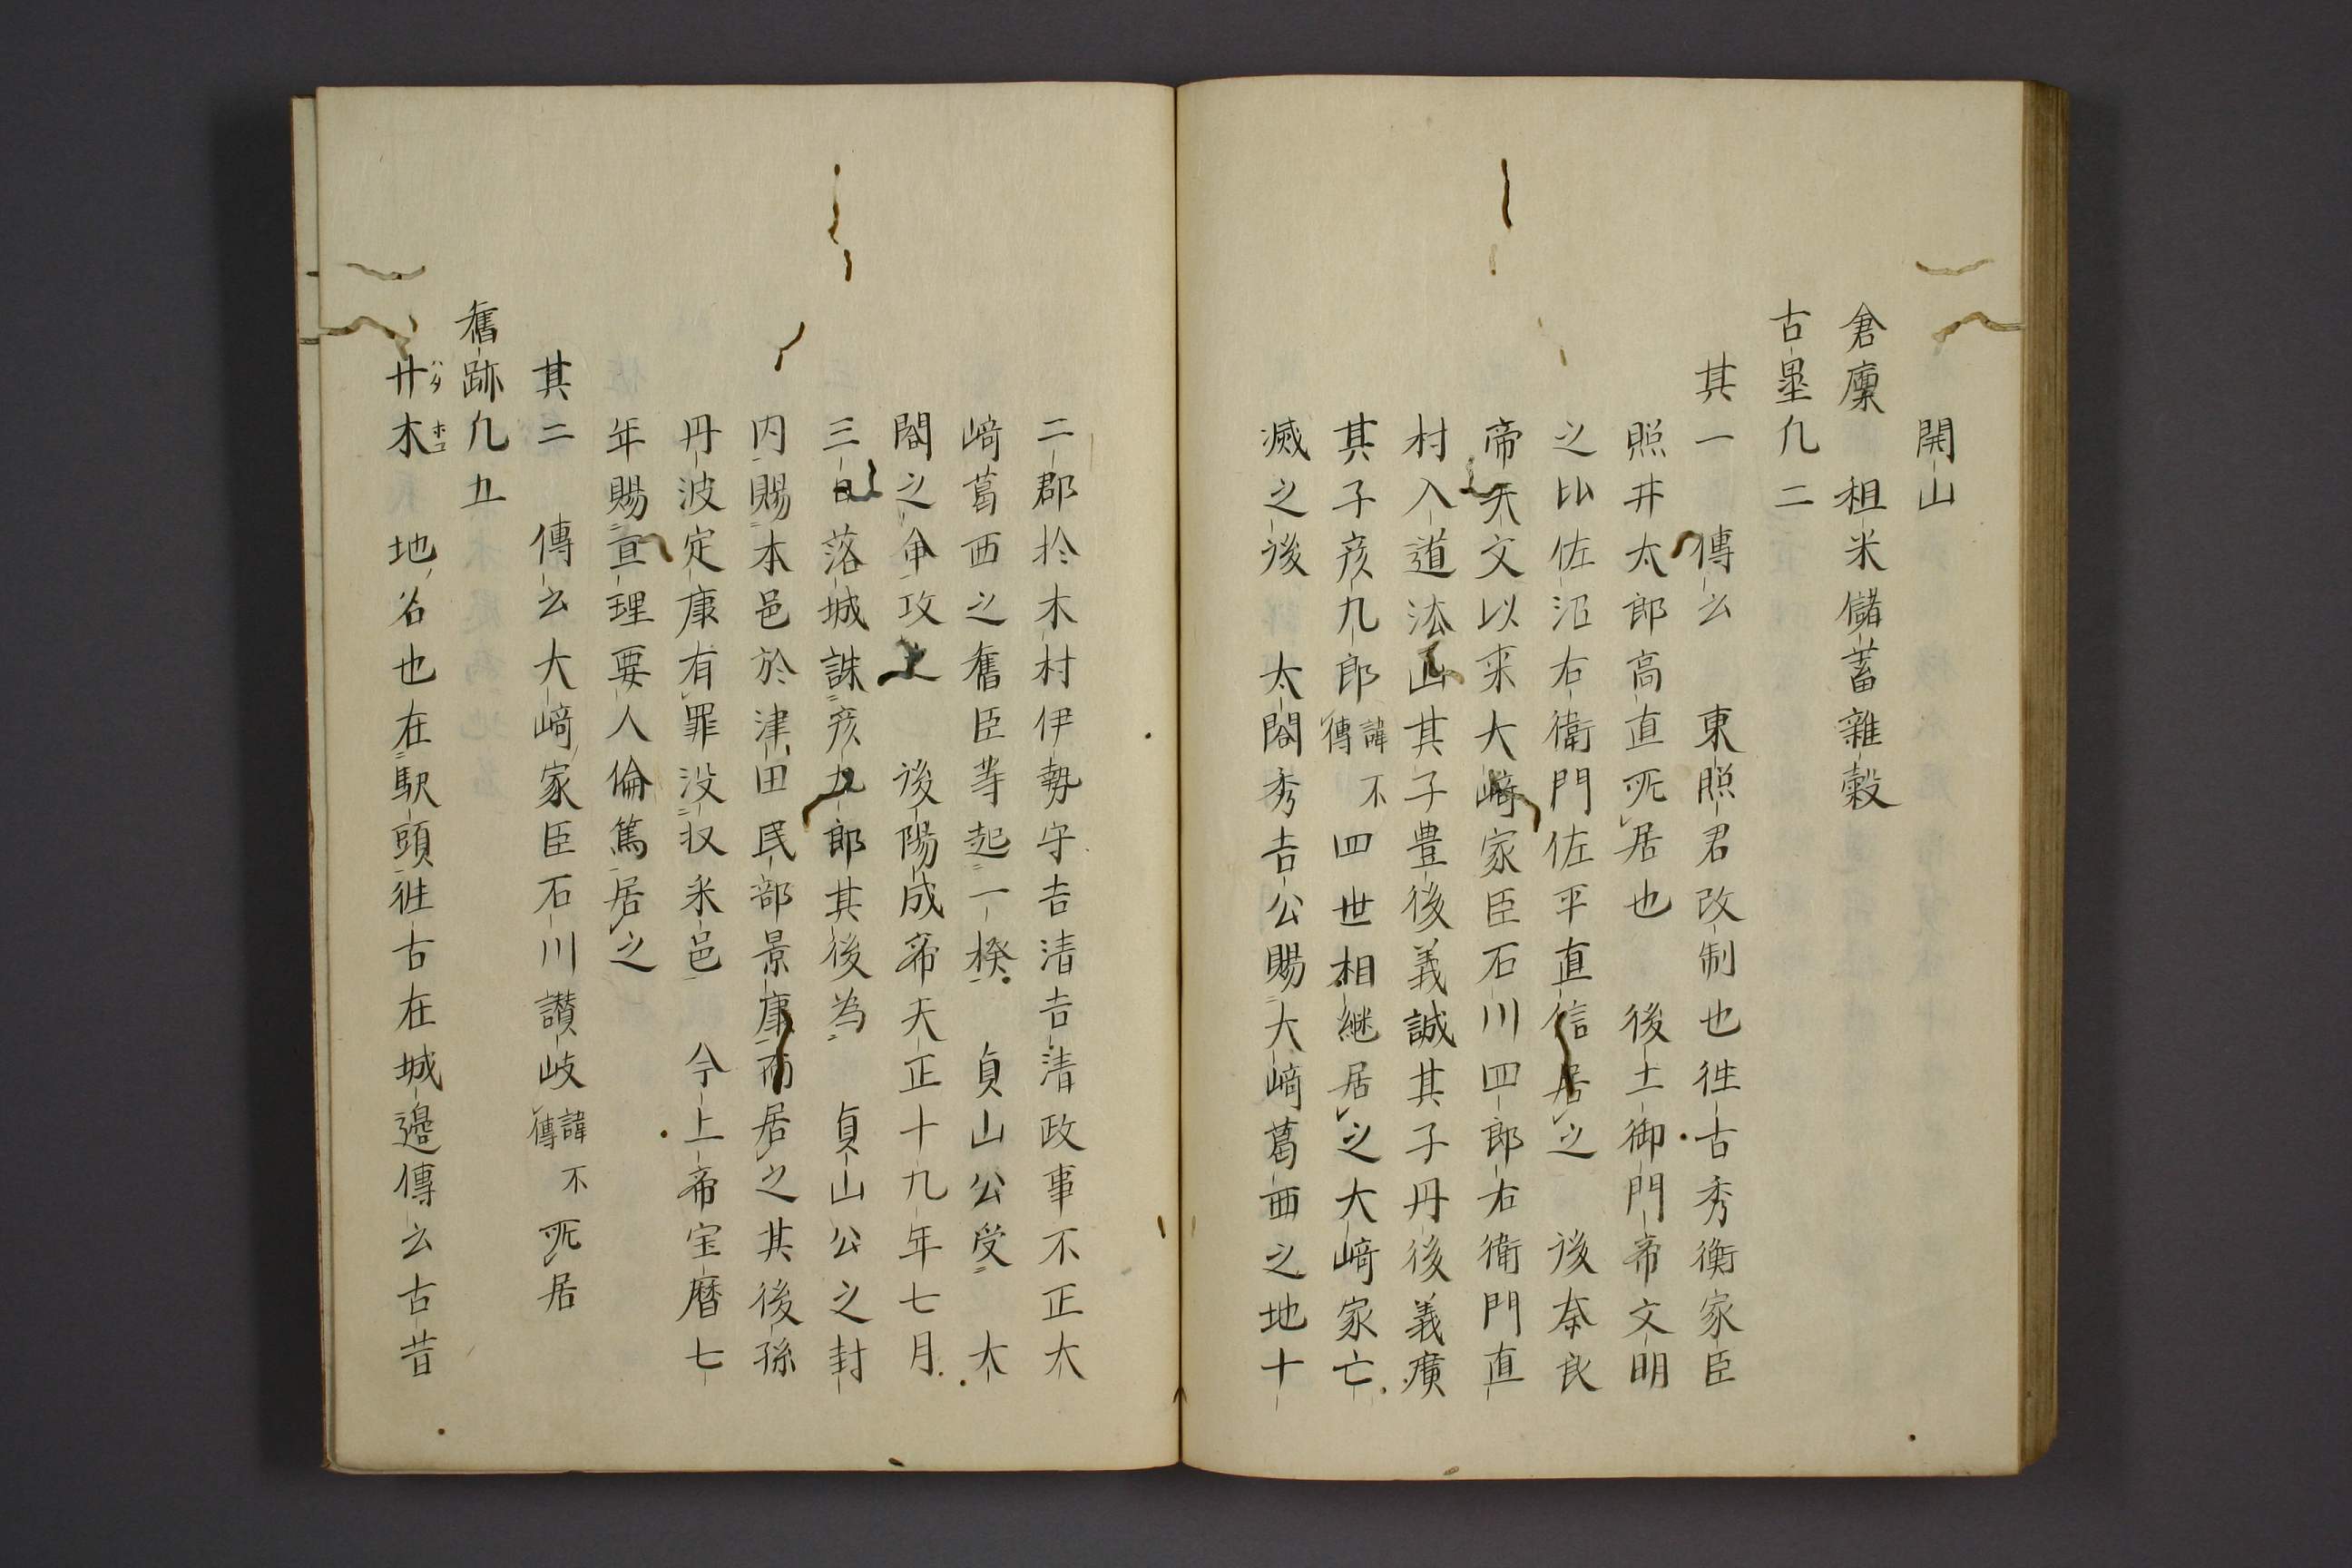 開山
倉廩　租米儲蓄雜穀
古壘凢二
其一　傳云　東照君改制也徃古秀衡家臣
照井太郎高直所居也　後土御門帝文明
之比佐沼右衛門佐平直信居之　後奈良
帝天文以来大﨑家臣石川四郎右衛門直
村入道法山其子豊後義誠其子丹後義廣
其子彦九郎諱不傳四世相継居之大﨑家亡
滅之後　太閤秀吉公賜大﨑葛西之地十
二郡扵木村伊勢守吉清吉清政事不正大
﨑葛西之舊臣等起一揆　貞山公受　太
閤之命攻之　後陽成帝天正十九年七月
三日落城誅彦九郎其後為　貞山公之封
内賜本邑於津田民部景康而居之其後孫
丹波定康有罪没収采邑　今上帝宝暦七
年賜亘理要人倫篤居之
其二　傳云大﨑家臣石川讃岐諱不傳所居
舊跡凢五
廿木ハタホコ　地名也在駅頭徃古在城邉傳云古昔